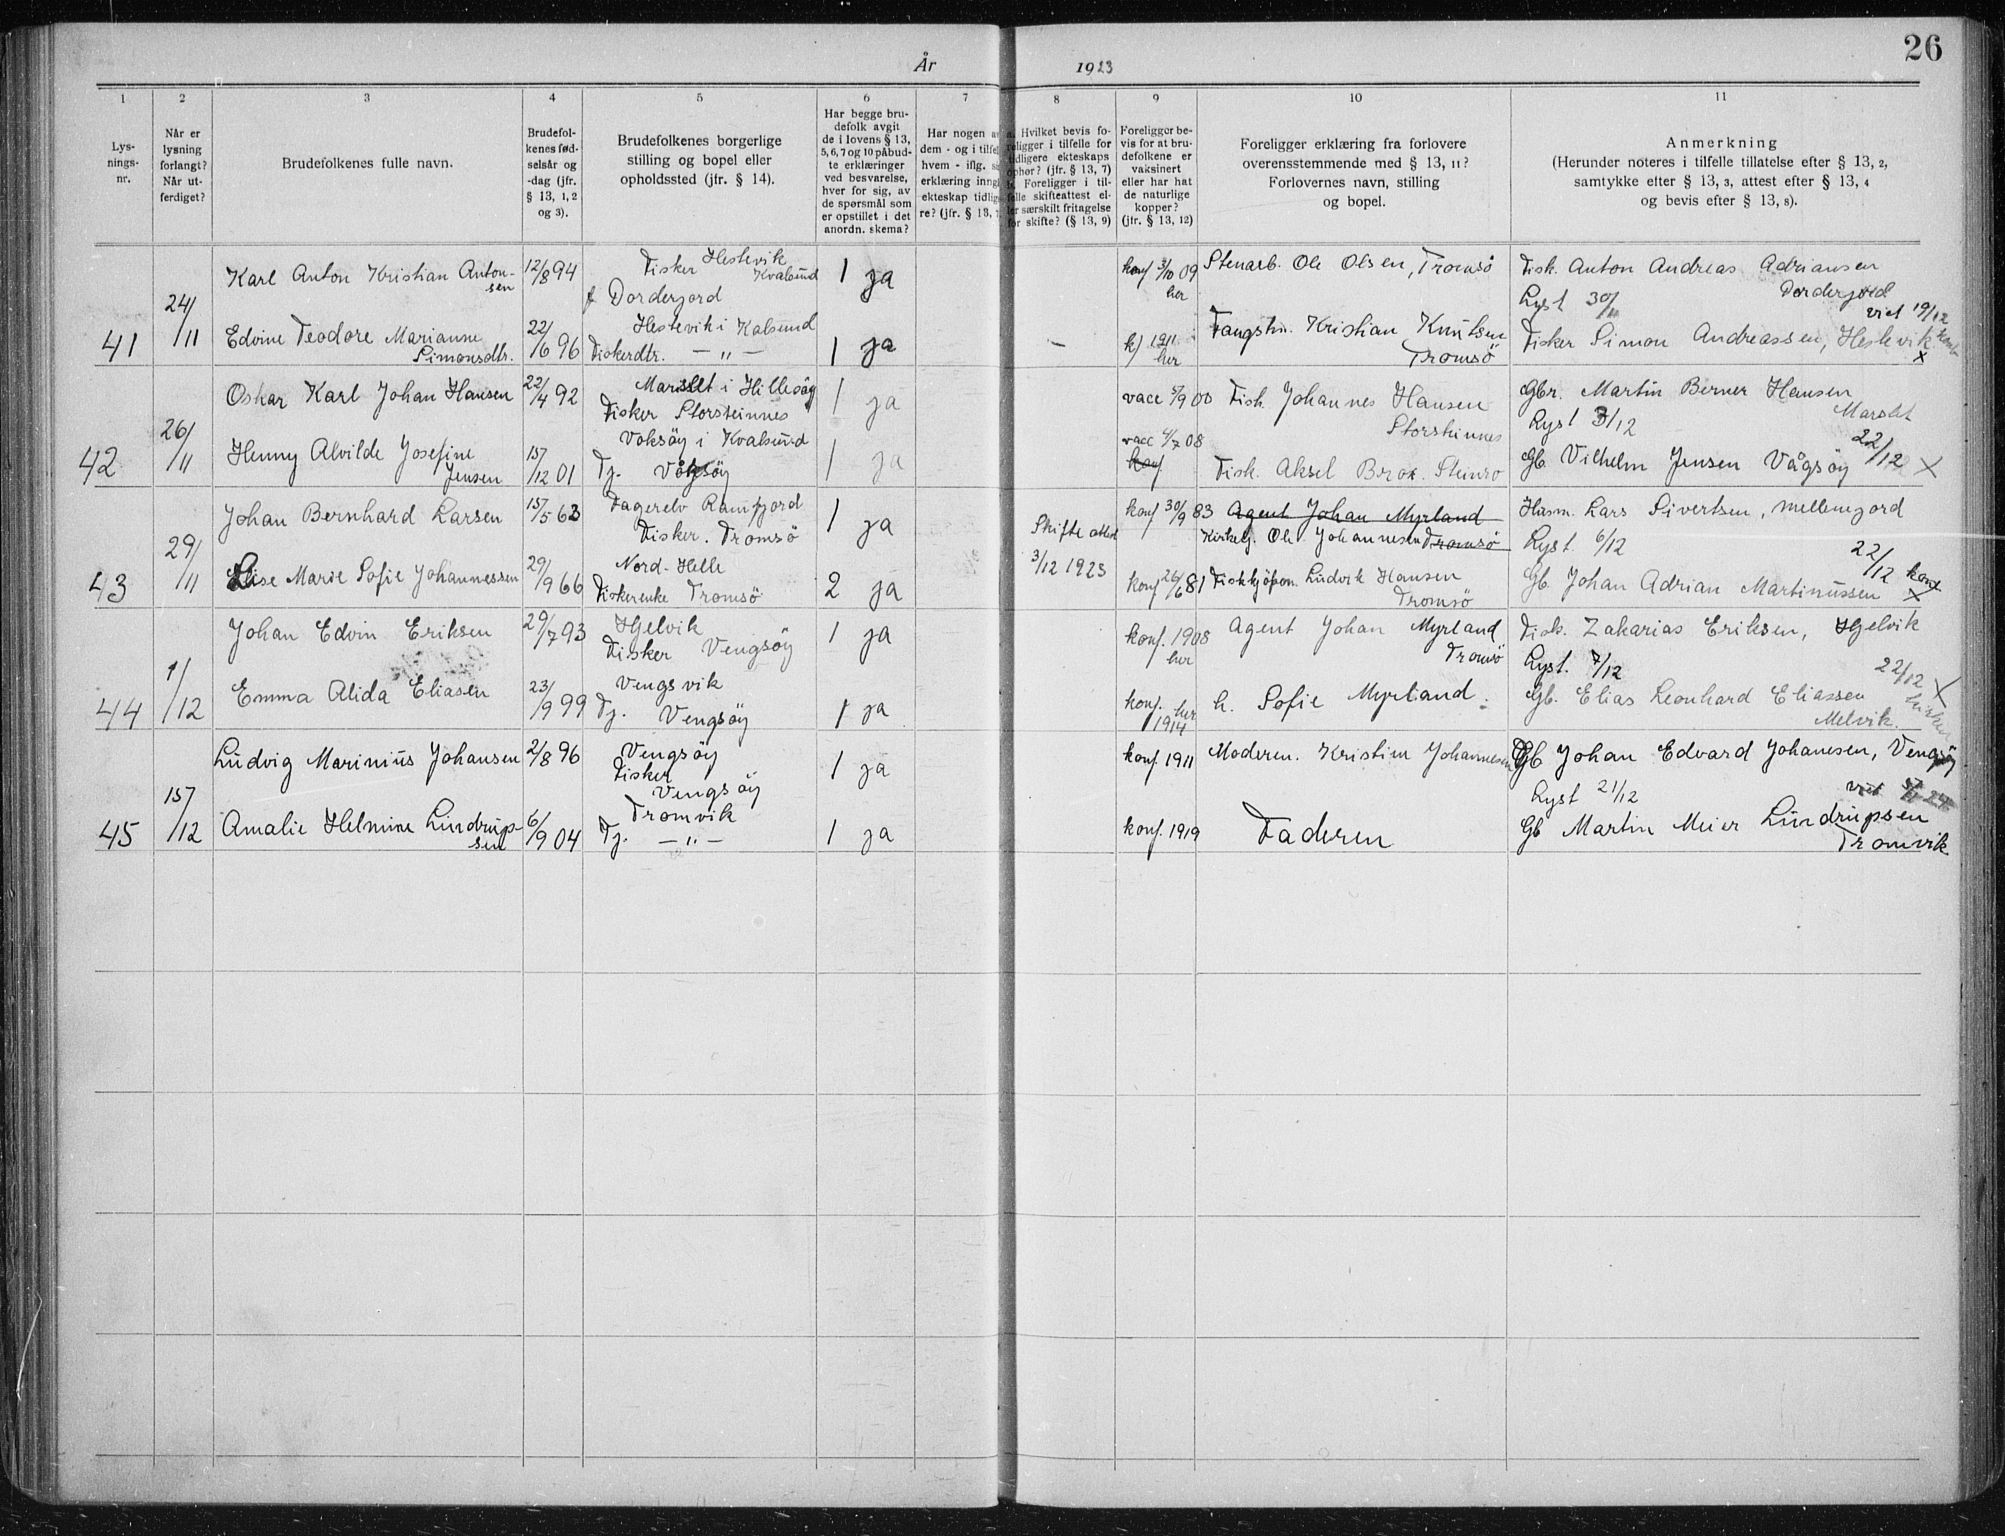 26
År 1923
1 2 3 4 5 6 7 8 9 10 11
Lys-
nings-
nr.
Når er
lysning
forlangt?
Når ut-
ferdiget?
Brudefolkenes fulle navn.
Brudefol-
kenes fød-
selsår og
-dag (jfr.
§ 13, 1, 2
og 3).
Brudefolkenes borgerlige
stilling og bopel eller
opholdssted (jfr. § 14).
Har begge bru-
defolk avgit
de i lovens § 13,
5, 6, 7 og 10 påbud-
te erklæringer
ved besvarelse,
hver for sig, av
de spørsmål som
er opstillet i det
anordn. skema?
Har nogen a
dem - og i tilfel
hvem - iflg. s
erklæring inng
ekteskap tidlig
re? (jfr. § 13, 7
a. Hvilket bevis fo-
religger i tilfelle for
tidligere ekteskaps
ophør? (jfr. § 13, 7)
b. Foreligger i til-
felle skifteattest el-
ler særskilt fritagelse
for skifte? (§ 13, 9)
Foreligger be-
vis for at bru-
defolkene er
vaksinert
eller har hat
de naturlige
kopper?
(jfr. § 13, 12)
Foreligger erklæring fra forlovere
overensstemmende med § 13, 11?
Forlovernes navn, stilling
og bopel.
Anmerkning
(Herunder noteres i tilfelle tillatelse efter § 13, 2,
samtykke efter § 13, 3, attest efter § 13, 4
og bevis efter § 13, 8).
41
24/11
Karl Anton Kristian Anton-
sen
12/8 94
Fisker Hestevik
Kvalsund
f Dorderjord
1 ja
konf 3/10 09
her
Stenarb. Ole Olsen, Tromsö
Fisk. Anton Andreas Adriansen
Dorderjord
Lyst 30/11
viet 19/12
Edvine Teodore Marianne
Simonsdtr.
22/6 96
Hestevik i Kalsund
Fiskerdtr. — " —
1 ja
—
kf 1911
her
Fangstm. Kristian Knutsen
Tromsö
Fisker Simon Andreassen, Hestevik
x
42
26/11
Oskar Karl Johan Hansen
22/4 92
Marslet i Hillesöy
Fisker Storsteinnes
1 ja
vacc 5/9 00
Fisk. Johannes Hansen
Storsteinnes
Gbr. Martin Berner Hansen
Marslet
Lyst 3/12
22/12
Henny Alvilde Josefine
Jensen
15/12 01
Voksöy i Kvalsund
Tj. Vågsöy
1 ja
vacc 4/7 08
konf
Fisk. Aksel Brox. Steinro
Gb Vilhelm Jensen Vågsöy
x
43
29/11
Johan Bernhard Larsen
15/5 63
Fagerelv Ramfjord
Fisker. Tromsö
1 ja
Skifte attest
3/12 1923
konf 30/9 83
Agent Johan Myrland
Kirkelj. Ole Johannesen Tromsö
Husm. Lars Sivertsen, Mellemjord
Lyst 6/12
22/12
Elise Marie Sofie Johannessen
29/9 66
Nord-Helle
Fiskerenke Tromsö
2 ja
konf 26/6 81
Fiskkjöpm. Ludvik Hansen
Tromsö
Gb Johan Adrian Martinussen
kont
x
44
1/12
Johan Edvin Eriksen
29/7 93
Hjelvik
Fisker Vengsöy
1 ja
konf. 1908
her
Agent Johan Myrland
Tromsö
Fisk. Zakarias Eriksen, Hjelvik
Lyst. 7/12
22/12
Emma Alida Eliasen
23/9 99
Vengsvik
Tj. Vengsöy
1 ja
konf. her
1914
h. Sofie Myrland.
Gb. Elias Leonhard Eliassen
Melvik.
x
45
15/12
Ludvig Marinius Johansen
2/8 96
Vengsöy
Fisker
Vengsöy
1 ja
konf. 1911
Moderen. Kristine Johannesen
Gb Johan Edvard Johanesen, Vengsöy
Lyst 21/12
Amalie Helmine Lindrup-
sen
6/9 04
Tromvik
Tj. — " —
1 ja
konf. 1919
Faderen
Gb Martin Meier Lindrupsen
Tromvik